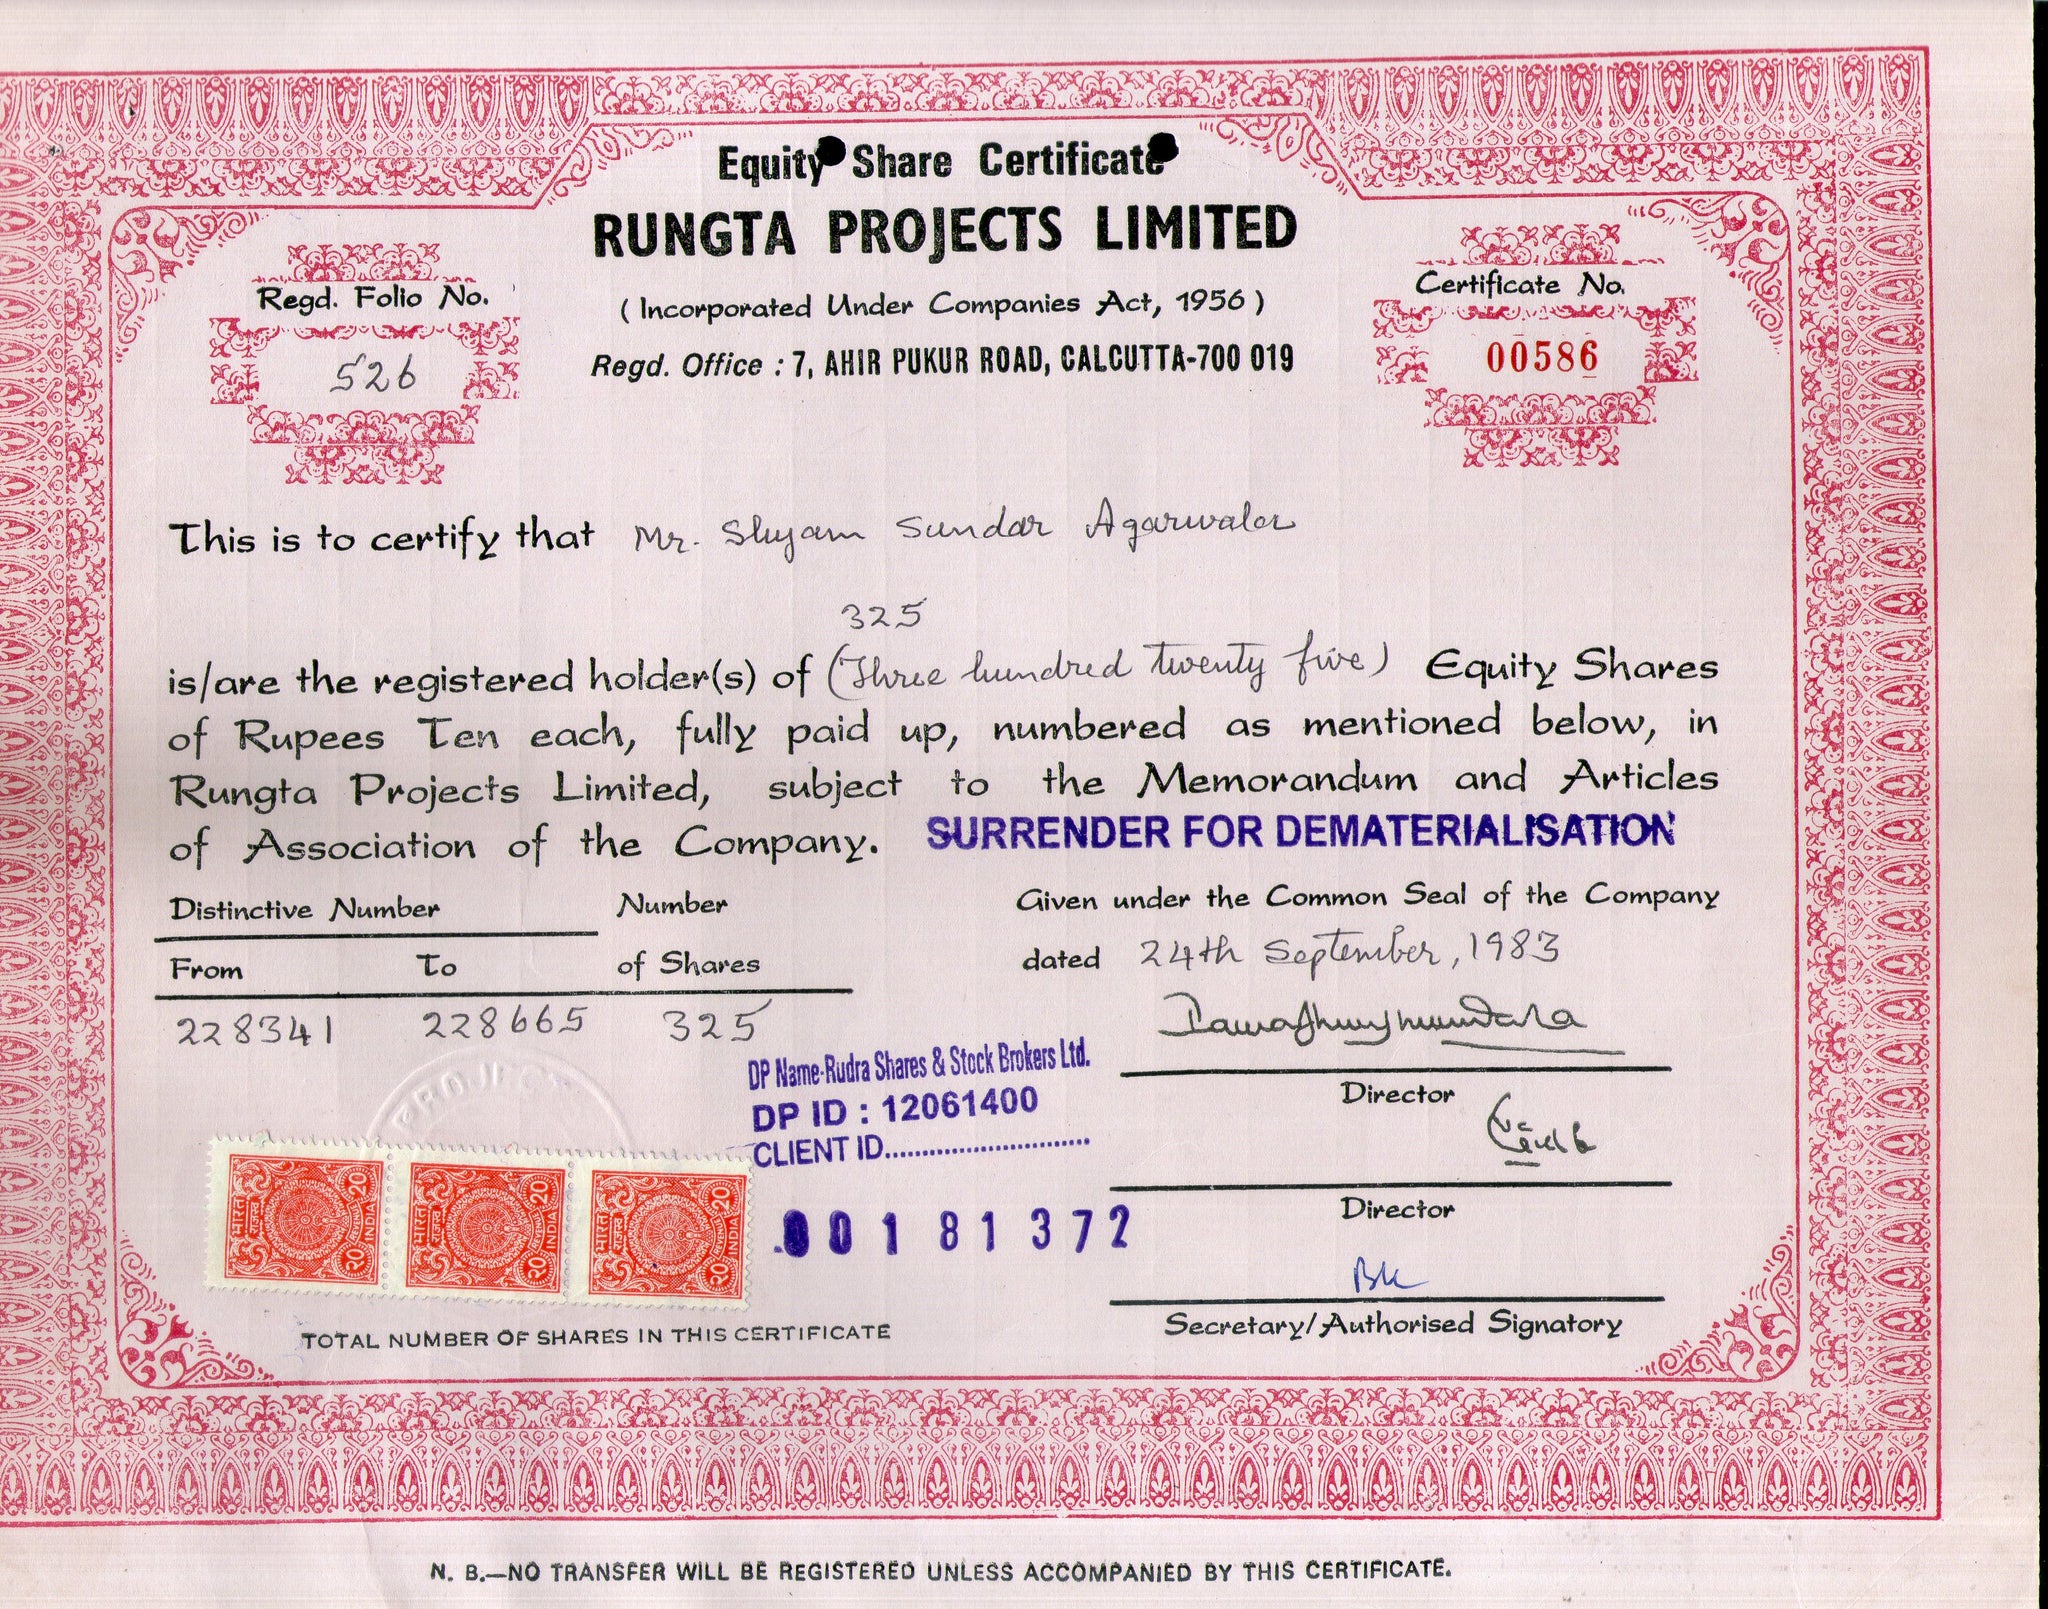 Equity Share Certificate
RUNGTA PROJECTS LIMITED
(Incorporated Under Companies Act, 1956)
Regd. Office : 7, AHIR PUKUR ROAD, CALCUTTA-700 019
Regd. Folio No.
526
Certificate No.
00586
This is to certify that Mr. Shyam Sundar Agarwala
325
is/are the registered holder(s) of (Three hundred twenty five) Equity Shares
of Rupees Ten each, fully paid up, numbered as mentioned below, in
Rungta Projects Limited, subject to the Memorandum and Articles
of Association of the Company. SURRENDER FOR DEMATERIALISATION
Distinctive Number Number
From To of Shares
228341 228665 325
Given under the Common Seal of the Company
dated 24th September, 1983
Director
Director
Secretary/Authorised Signatory
DP Name-Rudra Shares & Stock Brokers Ltd.
DP ID : 12061400
CLIENT ID..............................
00181372
PROJECT
भारत 20
राजस्व REVENUE
२० INDIA
भारत 20
राजस्व REVENUE
२० INDIA
भारत 20
राजस्व REVENUE
२० INDIA
TOTAL NUMBER OF SHARES IN THIS CERTIFICATE
N. B.—NO TRANSFER WILL BE REGISTERED UNLESS ACCOMPANIED BY THIS CERTIFICATE.